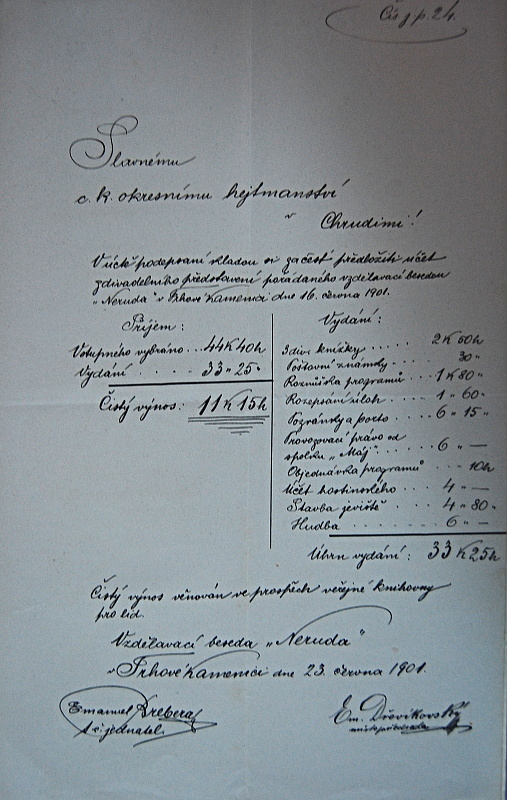 Čís. j. p. 24.
Slavnému
c. k. okresnímu hejtmanství
v
Chrudimi!
V úctě podepsaní skladou si za čest předložiti účet
z divadelního představení pořádaného vzdělávací besedou
„Neruda" v Trhové Kamenici dne 16. června 1901.
Příjem:
Vstupného vybráno ... 44 K 40 h
Vydání .... 33 " 25 "
Čistý výnos: 11 K 15 h
Vydání:
3 div. knížky 2 K 50 h
Poštovní známky .... 30 "
Roznůška programů .. 1 K 80 "
Rozepsání úloh .... 1 " 60 "
Pozvánky a porto .... 6 " 15 "
Provozovací právo od
spolku „Máj" .... 6 " —
Objednávka programů .. 10 h
Účet hostinského .... 4 " —
Stavba jeviště .... 4 " 80 "
Hudba ....... 6 " —
Úhrn vydání: 33 K 25 h
Čistý výnos věnován ve prospěch veřejné knihovny
pro lid.
Vzdělávací beseda „Neruda"
v Trhové Kamenici dne 23. června 1901.
Emanuel
t. č. jednatel.
Em. Dřevikovský
místopředseda